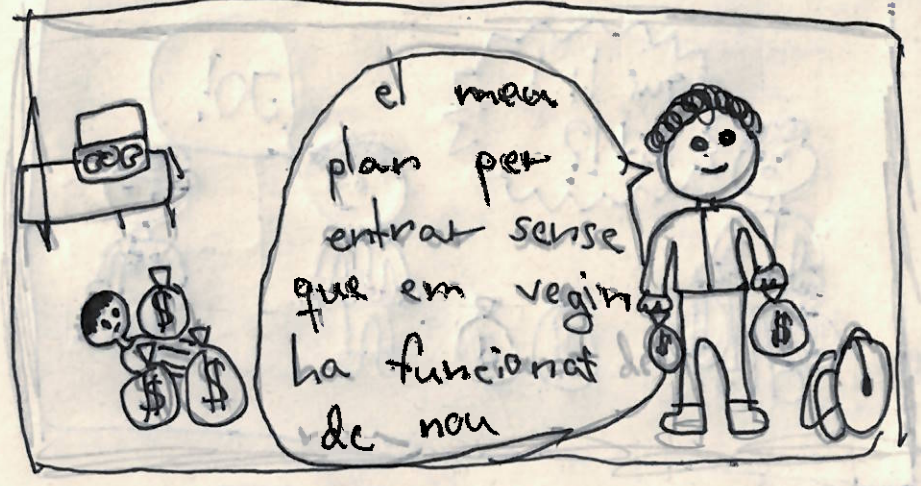 el meu
plan per
entrar sense
que em vegin
ha funcionat
de nou
$
$
$
$
$